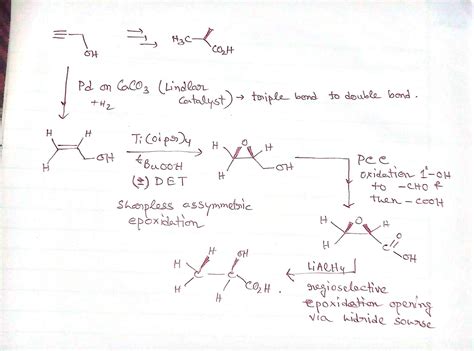 OH
H3C
CO2H
Pd on CaCO3 (Lindlar
+H2
Catalyst) → toriple bond to double bond.
H
H
H
OH
Ti(oipr)4
tBuOOH
DET
Sharpless assymmetric
epoxidation
H
O
H
H
OH
PCC
oxidation 1°-OH
to -CHO &
then -COOH
H
O
H
H
O
OH
LiAlH4
regioselective
epoxidation opening
via hidride sourse
H
OH
H
C
C
H
H
CO2H.